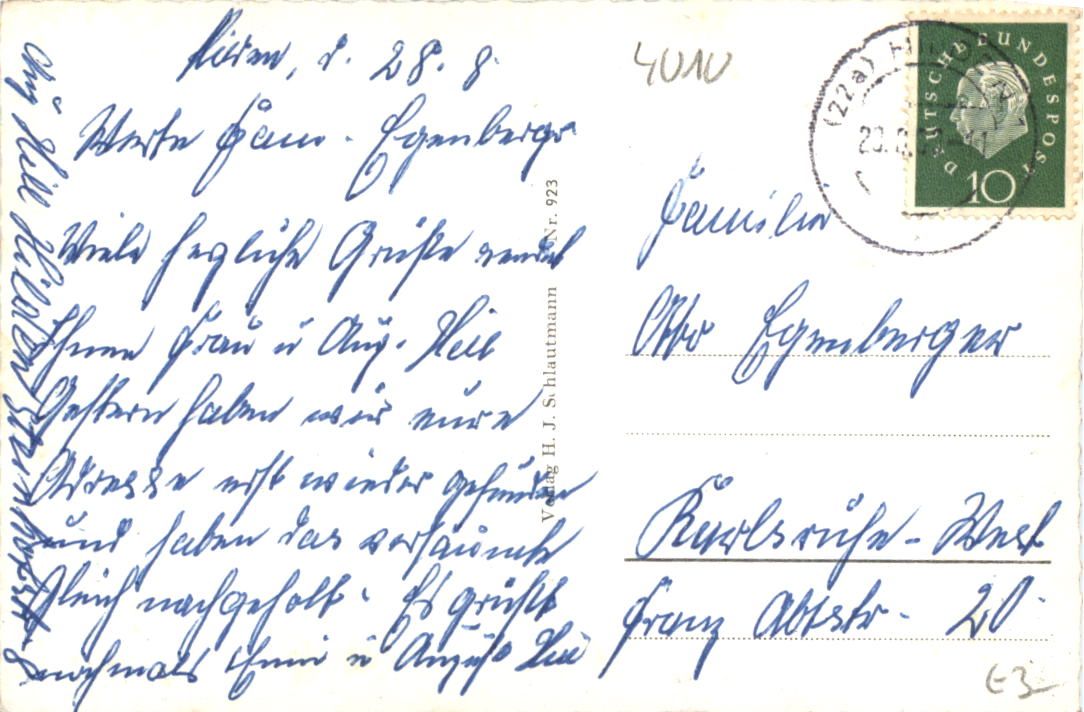 Hilden, d. 28. 8.
Werte Fam. Egenberger
Viele herzliche Grüße sendet
Ihnen Frau u Aug. Heil
Gestern haben wir eure
Adresse erst wieder gefunden
und haben das versäumte
gleich nachgeholt. Es grüßt
nochmals Emmi u August Heil
Aug Heil Hilden
Verlag H. J. Schlautmann Nr. 923
4010
(22a) HILDEN
DEUTSCHE BUNDESPOST
10
Familie
Otto Egenberger
Karlsruhe-West
Franz Abtstr. 20
€3